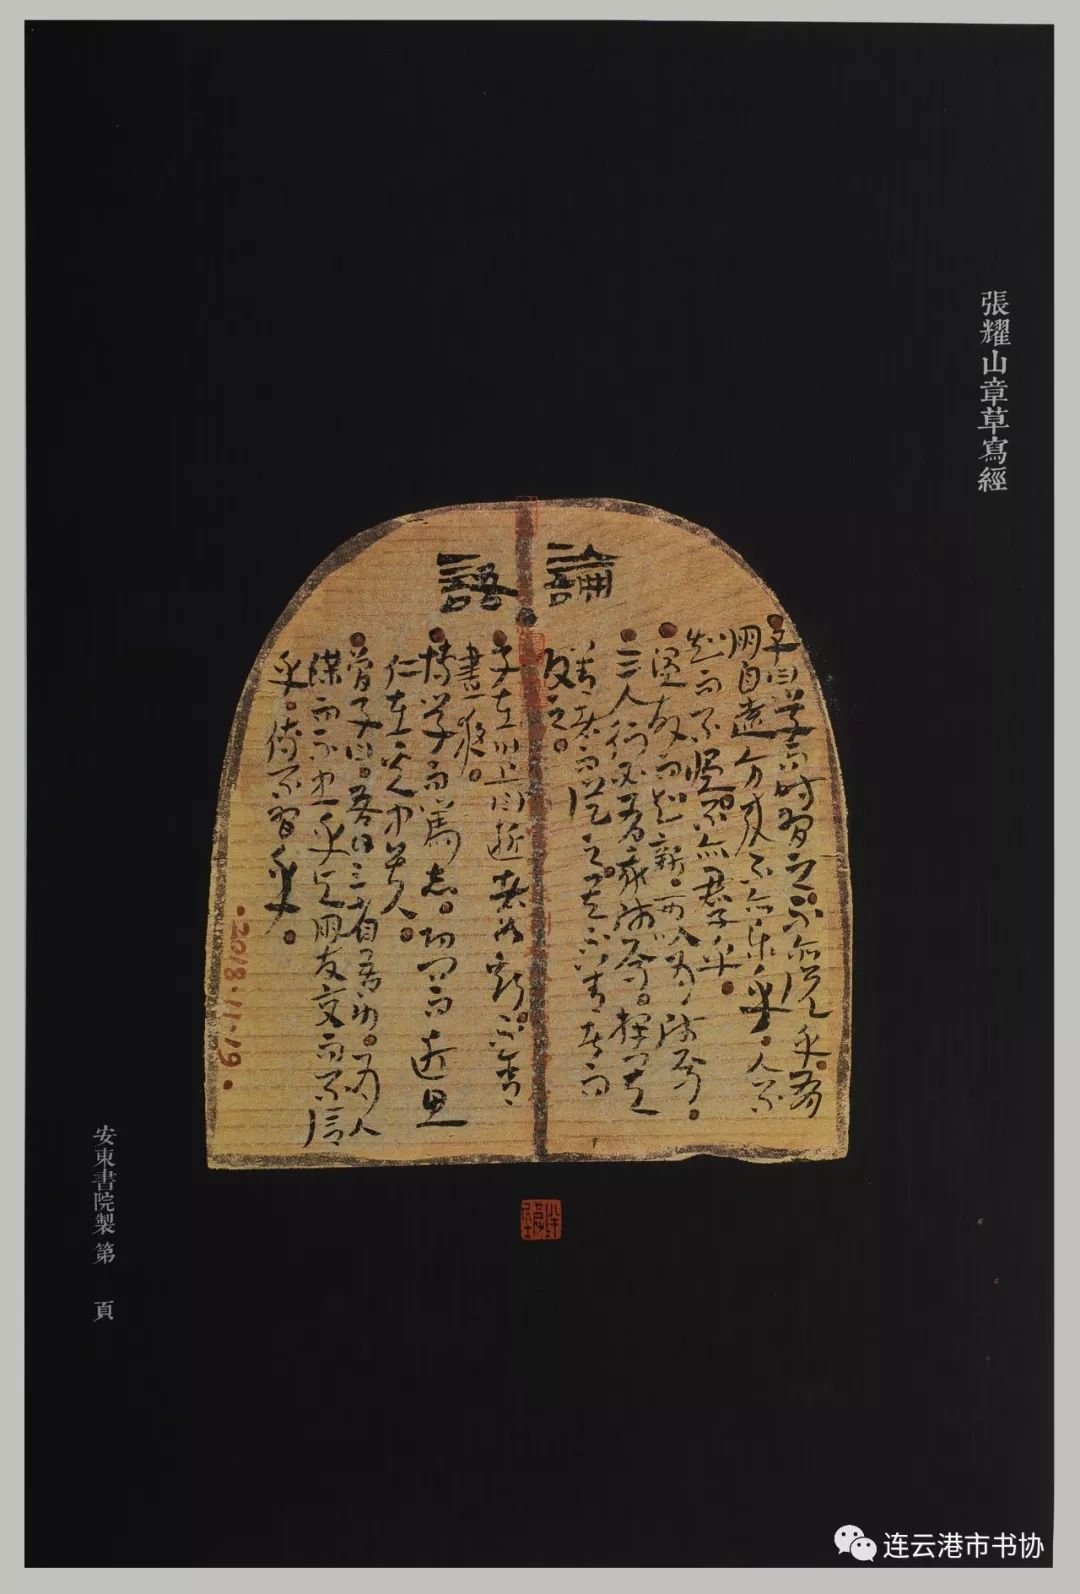 張耀山章草寫經
論語
子曰學而時習之不亦說乎有
朋自遠方來不亦樂乎人不
知而不慍不亦君子乎
溫故而知新可以為師矣
三人行必有我師焉擇其
善者而從之其不善者而
改之
子在川上曰逝者如斯不舍
晝夜
博學而篤志切問而近思
仁在其中矣
曾子曰吾日三省吾身為人
謀而不忠乎與朋友交而不信
乎傳不習乎
·2018·11·19·
安東書院製 第 頁
连云港市书协